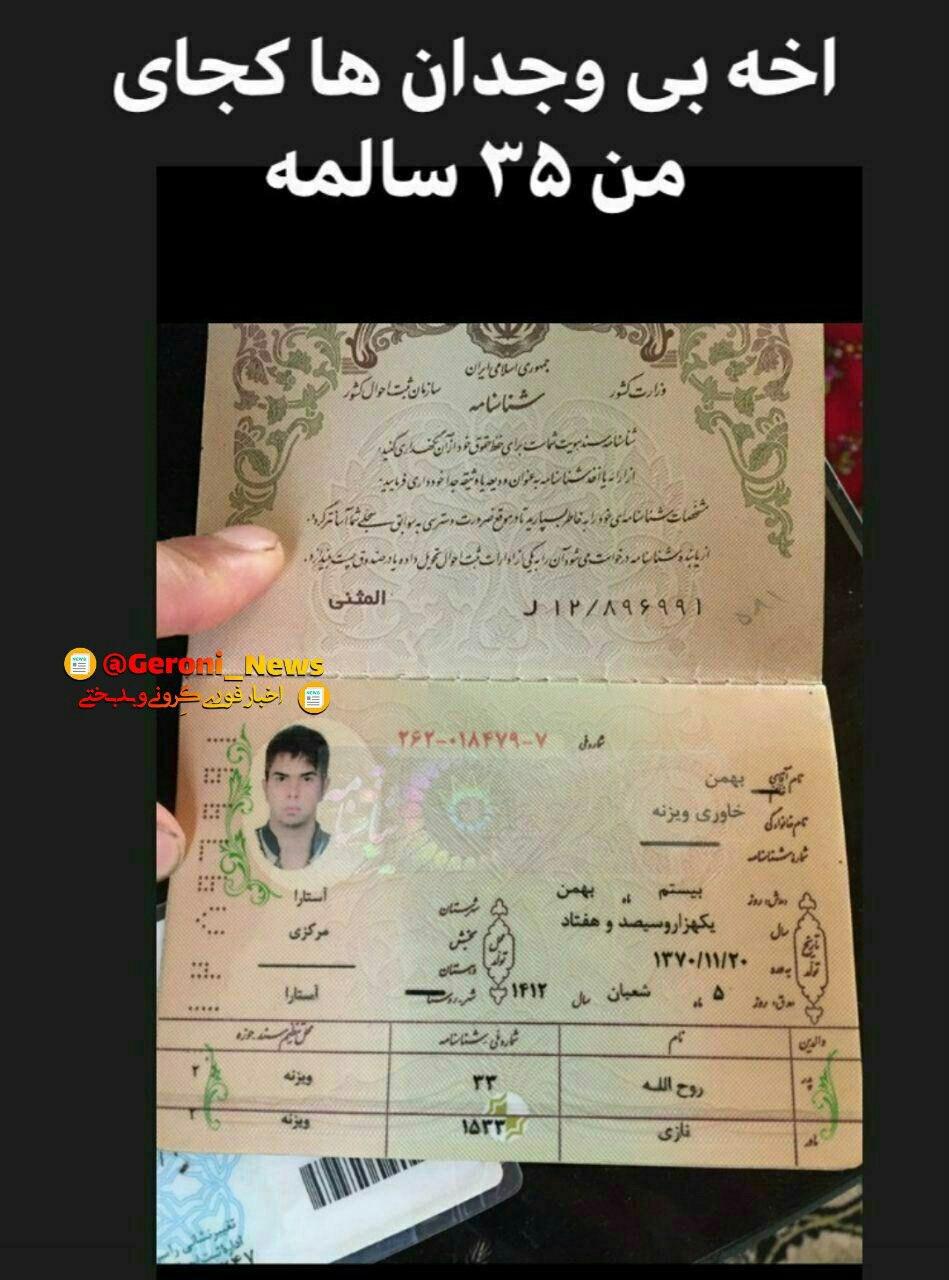 اخه بی وجدان ها کجای
من ۳۵ سالمه
جمهوری اسلامی ایران
وزارت کشور
سازمان ثبت احوال کشور
شناسنامه
شناسنامه سند هویت شماست برای حفظ حقوق خود از آن نگهداری کنید.
از ارائه یا اخذ شناسنامه به عنوان ودیعه یا وثیقه جداً خودداری فرمایید.
مشخصات شناسنامه‌ای خود را به خاطر بسپارید تا در موقع ضرورت دسترسی به سوابق سجلی شما آسانتر گردد.
از یابنده شناسنامه درخواست می‌شود آن را به یکی از ادارات ثبت احوال تحویل داده یا در صندوق پست بیندازد.
المثنی
ل ۱۲/۸۹۶۹۹۱
@Geroni_News
اخبار فوری گرونی و بدبختی
شماره ملی ۲۶۲-۰۱۸۴۷۹-۷
نام آقای بهمن
نام خانوادگی خاوری ویزنه
شماره شناسنامه
روز بیستم ماه بهمن
سال یکهزاروسیصد و هفتاد
۱۳۷۰/۱۱/۲۰
روز ۵ ماه شعبان سال ۱۴۱۲
تاریخ تولد
محل تولد
شهرستان آستارا
بخش مرکزی
دهستان
آستارا
والدین نام شماره ملی/شناسنامه محل تنظیم سند حوزه
پدر روح الله ۳۳ ویزنه ۲
مادر نازی ۱۵۳۳ ویزنه ۲